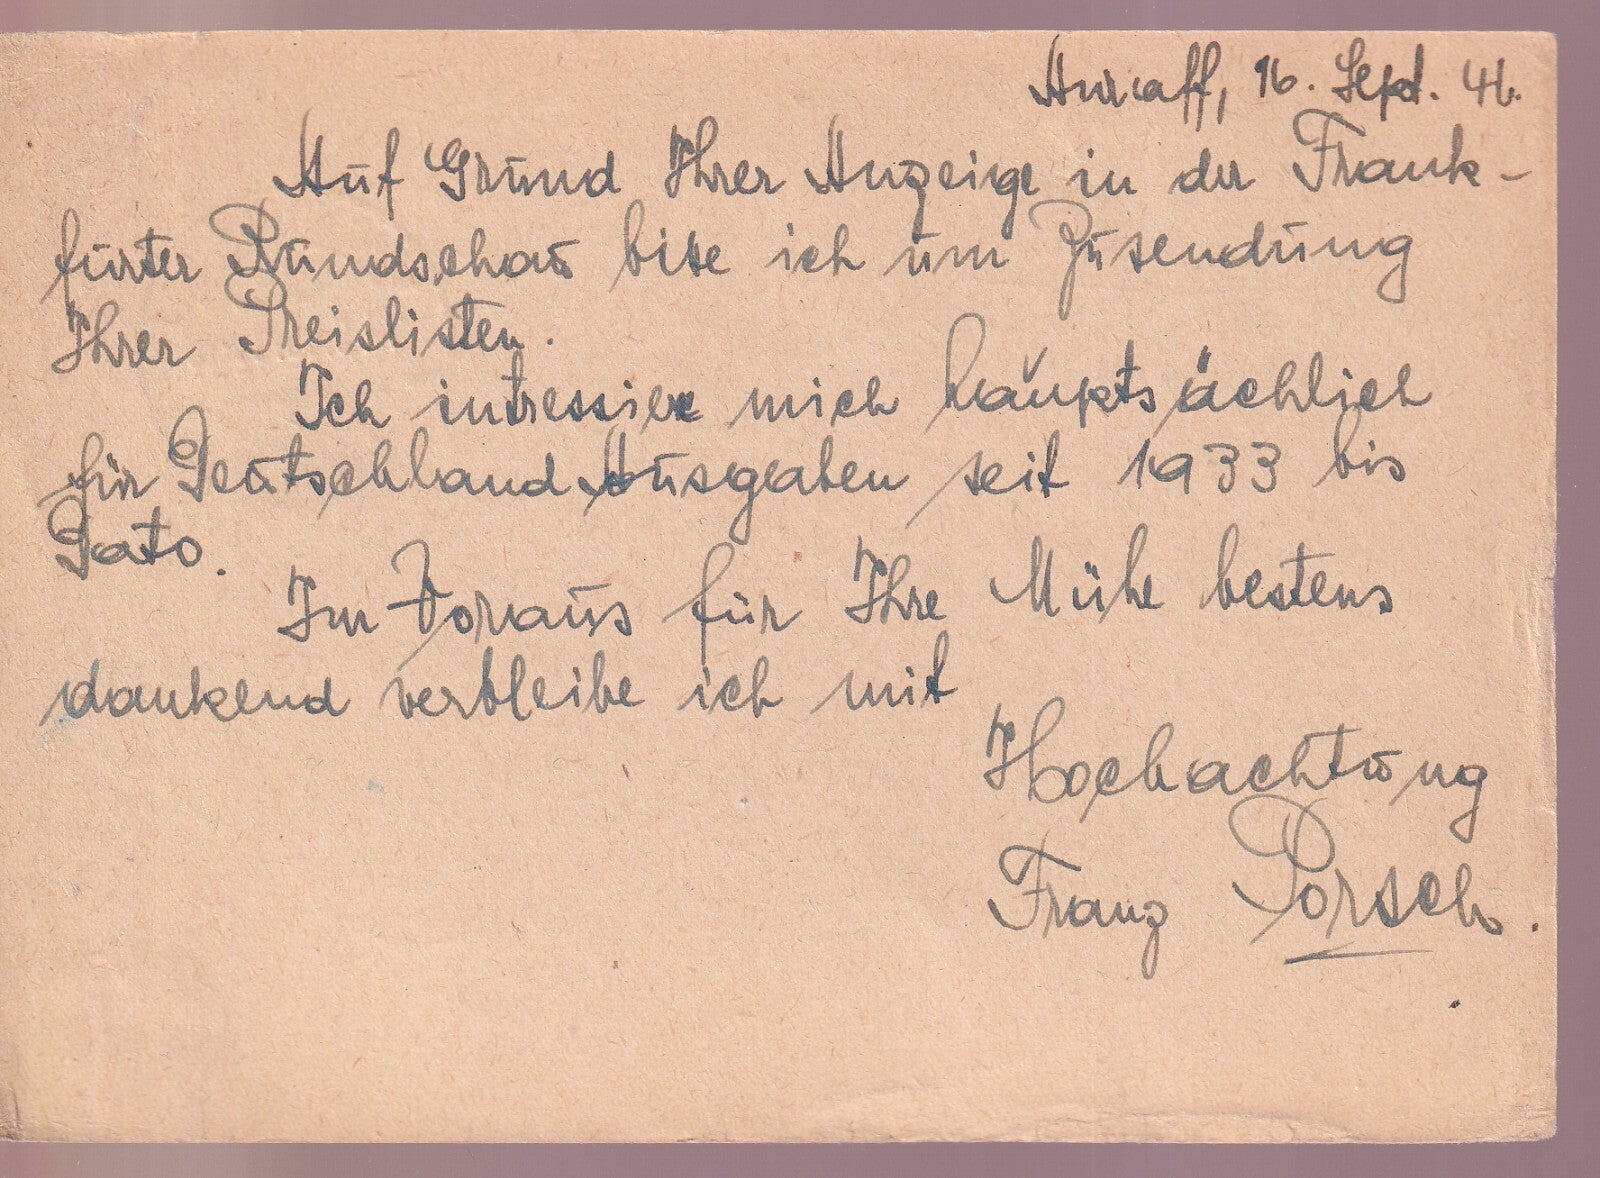 Auraff, 16. Sept. 46.
Auf Grund Ihrer Anzeige in der Frank-
furter Rundschau bitte ich um Zusendung
Ihrer Preislisten.
Ich intressiere mich hauptsächlich
für Deutschland Ausgaben seit 1933 bis
Dato.
Im Voraus für Ihre Mühe bestens
dankend verbleibe ich mit
Hochachtung
Franz Porsch.